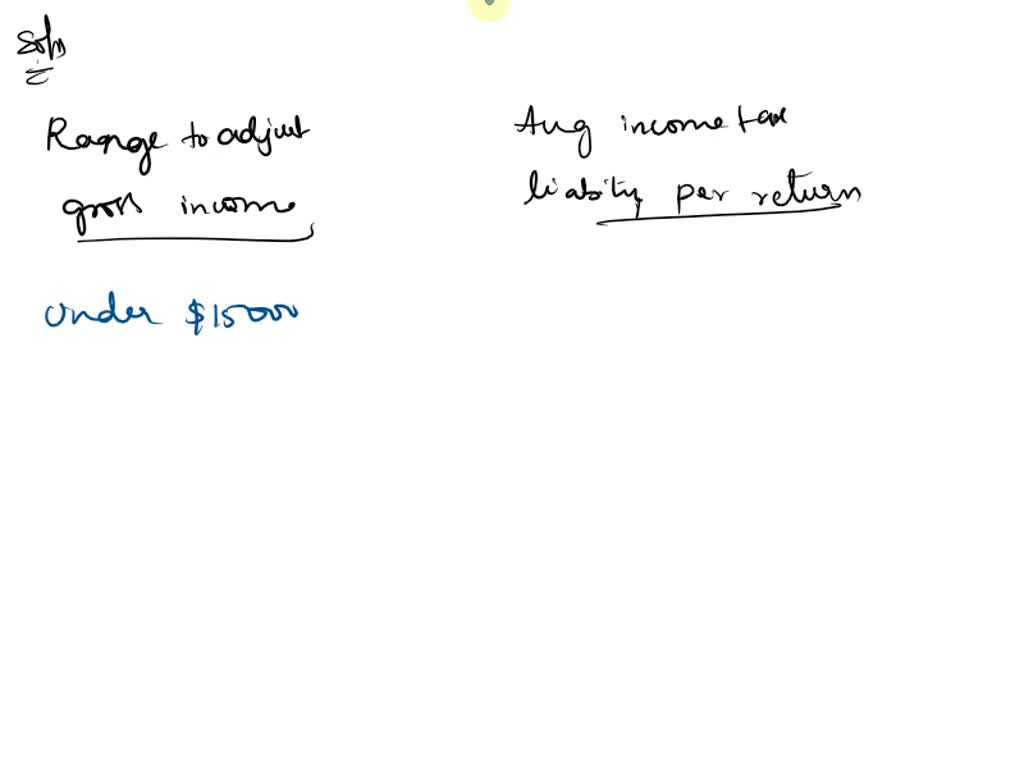 Soln
Range to adjust
gross income
Avg income tax
liability per return
Under $15000